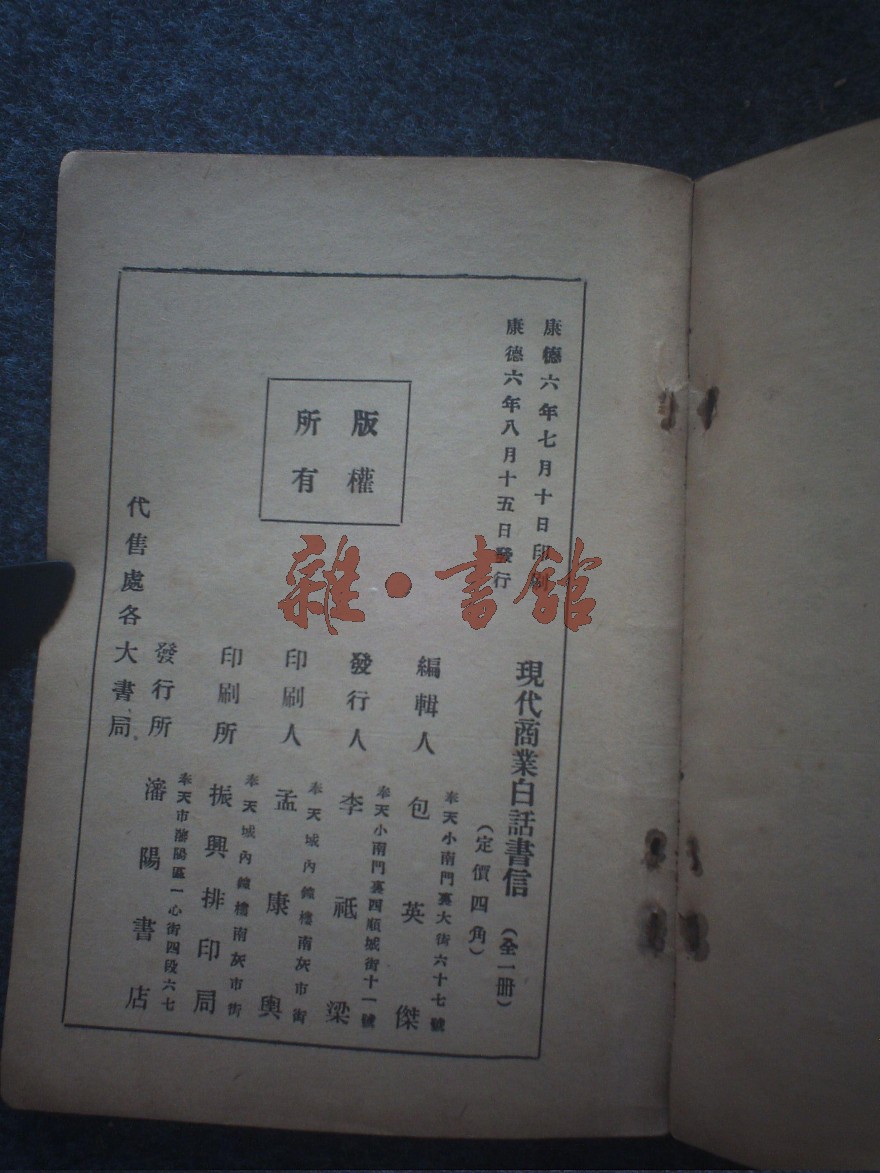 康德六年七月十日印刷
康德六年八月十五日發行
現代商業白話書信（全一冊）
（定價四角）
奉天小南門裏大街六十七號
編輯人 包英傑
奉天小南門裏四順城街十一號
發行人 李祗梁
奉天城內鐘樓南灰市街
印刷人 孟康輿
奉天城內鐘樓南灰市街
印刷所 振興排印局
奉天市瀋陽區一心街四段六七
發行所 瀋陽書店
代售處各大書局
版權
所有
雜·書館